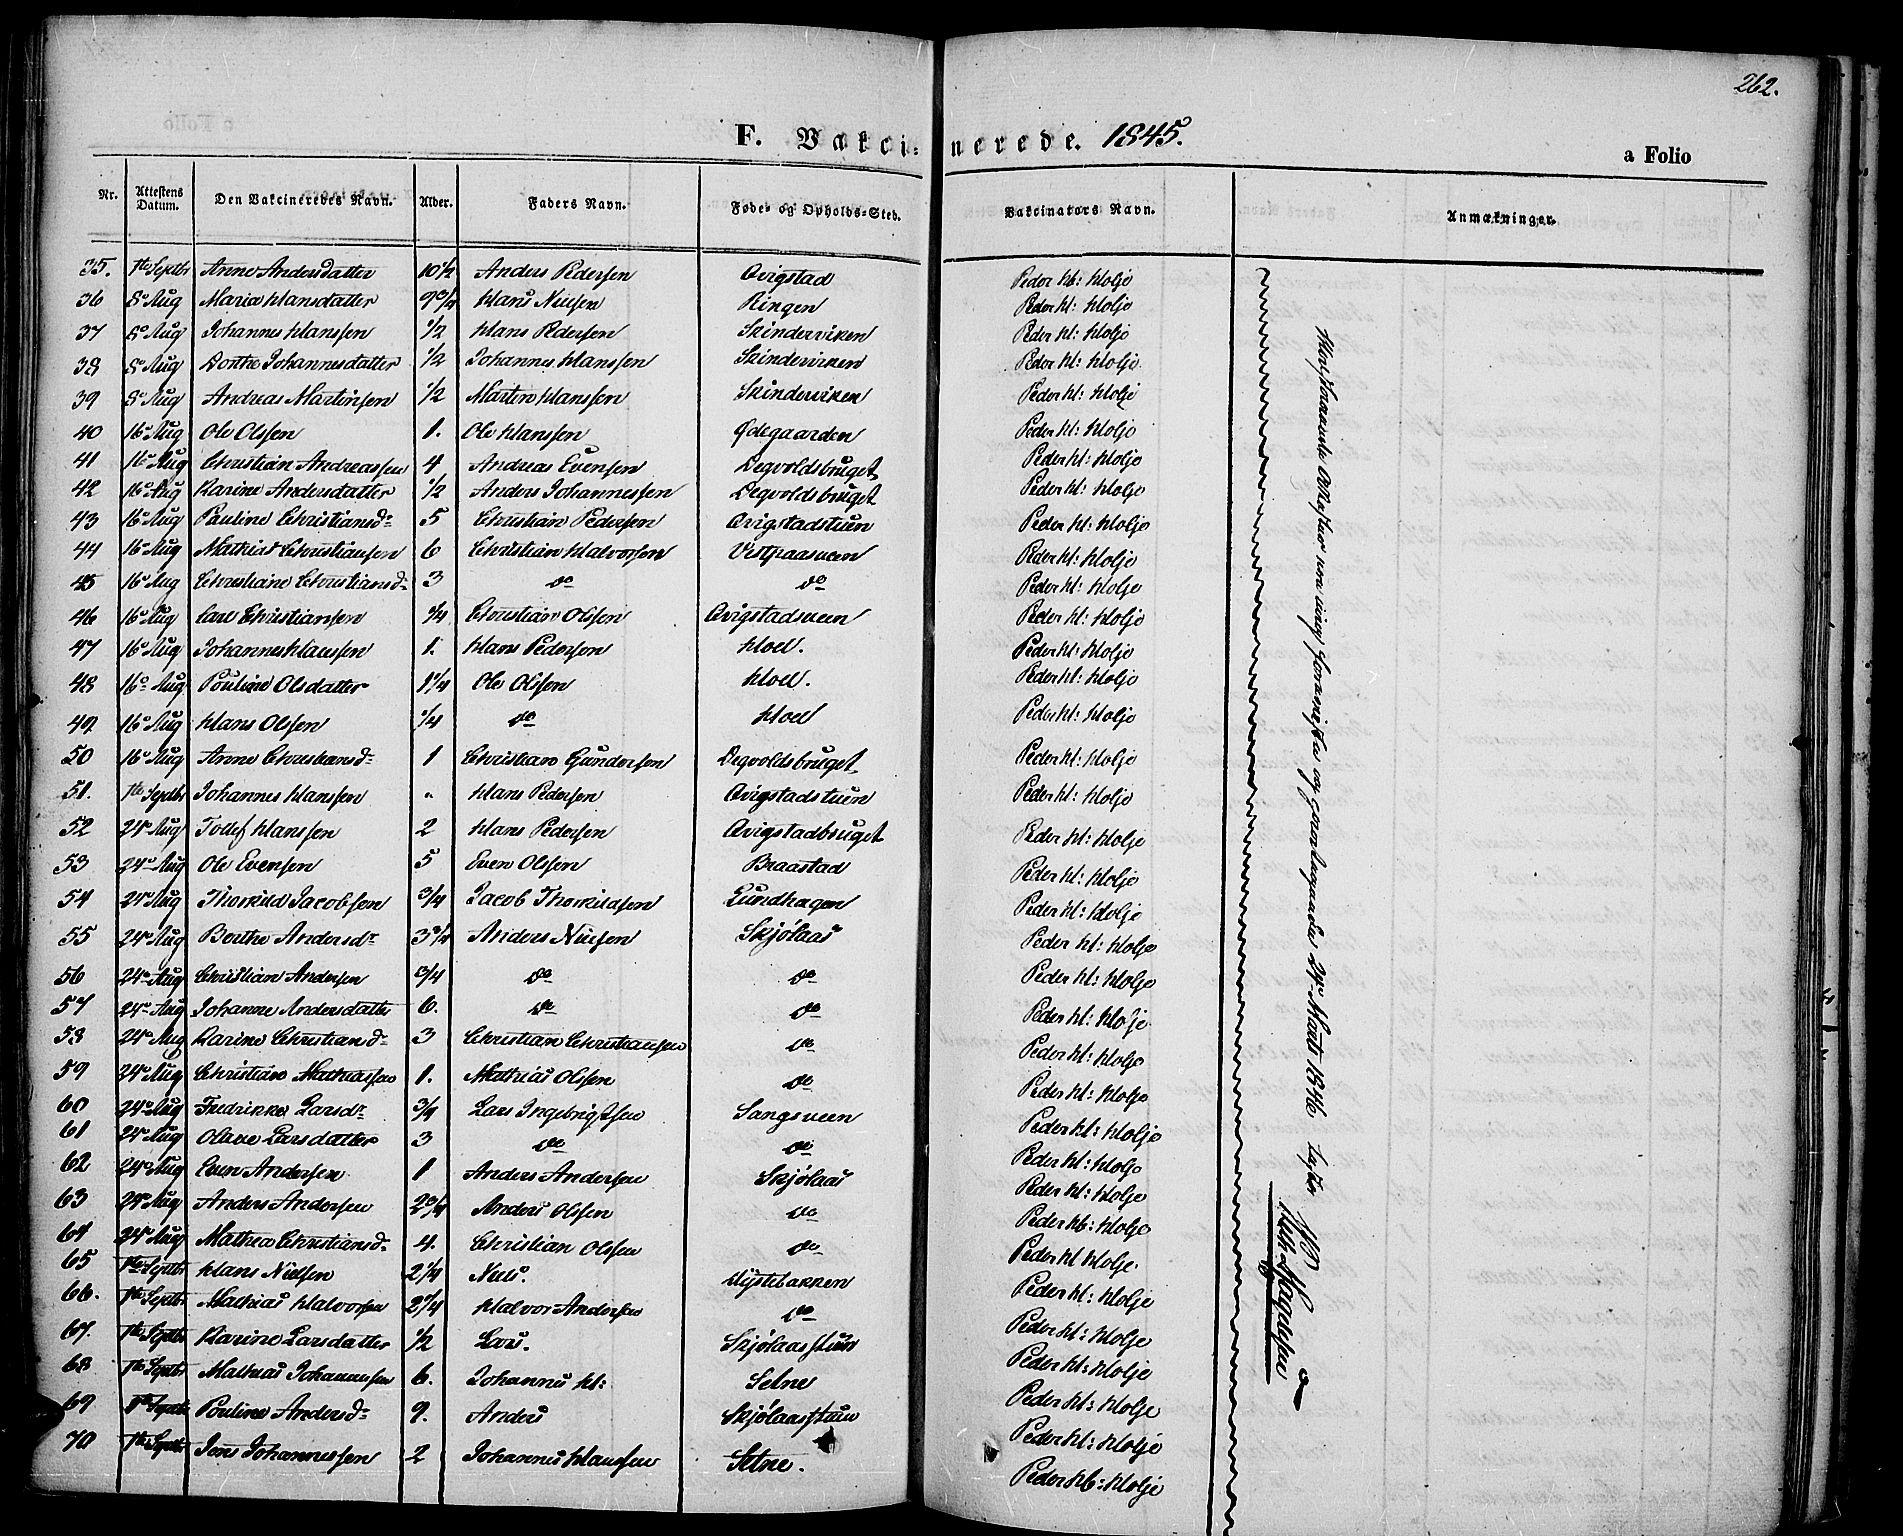 262.
F. Vakcinerede. 1845.
a Folio
Nr. Attestens Datum. Den Vakcineredes Navn. Alder. Faders Navn. Føde- og Opholds-Sted. Vakcinators Navn. Anmærkninger.
35. 1te Septbr Anne Andersdatter 10½ Anders Pedersen Qvigstad Peder H: Holje
36 8de Aug Maria Hansdatter 9¾ Hans Nielsen Ringen Peder H: Holje
37 8de Aug Johannes Hanssen ½ Hans Pedersen Skinderviken Peder H: Holje
38 8de Aug Dorthe Johannesdatter ½ Johannes Hanssen Skinderviken Peder H: Holje
39 8de Aug Andreas Martinsen ½ Martin Hanssen Skinderviken Peder H: Holje
40 16de Aug Ole Olssen 1. Ole Hanssen Ødegaarden Peder H: Holje
41 16de Aug Christian Andreassen 4 Andreas Evensen Degvoldsbruget Peder H: Holje
42 16de Aug Karine Andersdatter ½ Anders Johannessen Degvoldsbruget Peder H: Holje
43 16de Aug Pauline Christiansd: 5 Christian Pedersen Qvigstadstuen Peder H: Holje
44 16de Aug Mathias Christiansen 6 Christian Halvorsen Vestraasveen Peder H: Holje
45 16de Aug Christiane Christiansd: 3 do do Peder H: Holje
46 16de Aug Carl Christiansen ¾ Christian Olssen Qvigstadsveen Peder H: Holje
47 16de Aug Johannes Hanssen 1. Hans Pedersen Hoel. Peder H: Holje
48 16de Aug Pouline Olsdatter 1¼ Ole Olssen Hoel. Peder H: Holje
49 16de Aug Hans Olssen ¼ do Hoel Peder H: Holje
50 16de Aug Anne Christiansd: 1 Christian Gundersen Degvoldsbruget Peder H: Holje
51. 1te Septbr Johannes Hanssen " Hans Pedersen Qvigstadstuen Peder H: Holje
52 24de Aug Tollef Hanssen 2 Hans Pedersen Qvigstadbruget Peder H: Holje
53 24de Aug Ole Evensen 5 Even Olssen Braastad Peder H: Holje
54 24de Aug Thorkild Jacobsen ¾ Jacob Thorkildsen Lundhagen Peder H: Holje
55 24de Aug Berthe Andersdr 3¾ Anders Nielsen Skjølaas Peder H: Holje
56 24de Aug Christian Andersen ¾ do do Peder H: Holje
57 24de Aug Johanne Andersdatter 6. do do Peder H: Holje
58 24de Aug Karine Christiansd: 3 Christian Christiansen do Peder H: Holje
59 24de Aug Christian Mathiassen 1. Mathias Olssen do Peder H: Holje
60 24de Aug Fredrikke Larsdr ¾ Lars Ingebrigtsen Sangsveen Peder H: Holje
61 24de Aug Olave Larsdatter 3 do do Peder H: Holje
62 24de Aug Even Andersen 1 Anders Andersen Skjølaas Peder H: Holje
63 24de Aug Anders Andersen 2¾ Anders Olssen do Peder H: Holje
64 24de Aug Mathea Christiansd: 4. Christian Olssen do Peder H: Holje
65 1te Septbr Hans Nielsen 2¼ Niels. Hystebakken Peder H: Holje
66. 1te Septbr Mathias Halvorsen 2¼ Halvor Andersen do Peder H: Holje
67. 1te Septbr Karine Larsdatter ½ Lars. Skjølaasstuen Peder H: Holje
68 1te Septbr Mathias Johannessen 6. Johannes H: Selne Peder H: Holje
69 1te Septbr Pouline Andersd: 9. Anders Skjølaasstuen Peder H: Holje
70 1te Septbr Jens Johannessen 2 Johannes Hanssen Selne. Peder H: Holje
og 24de Marts 1846